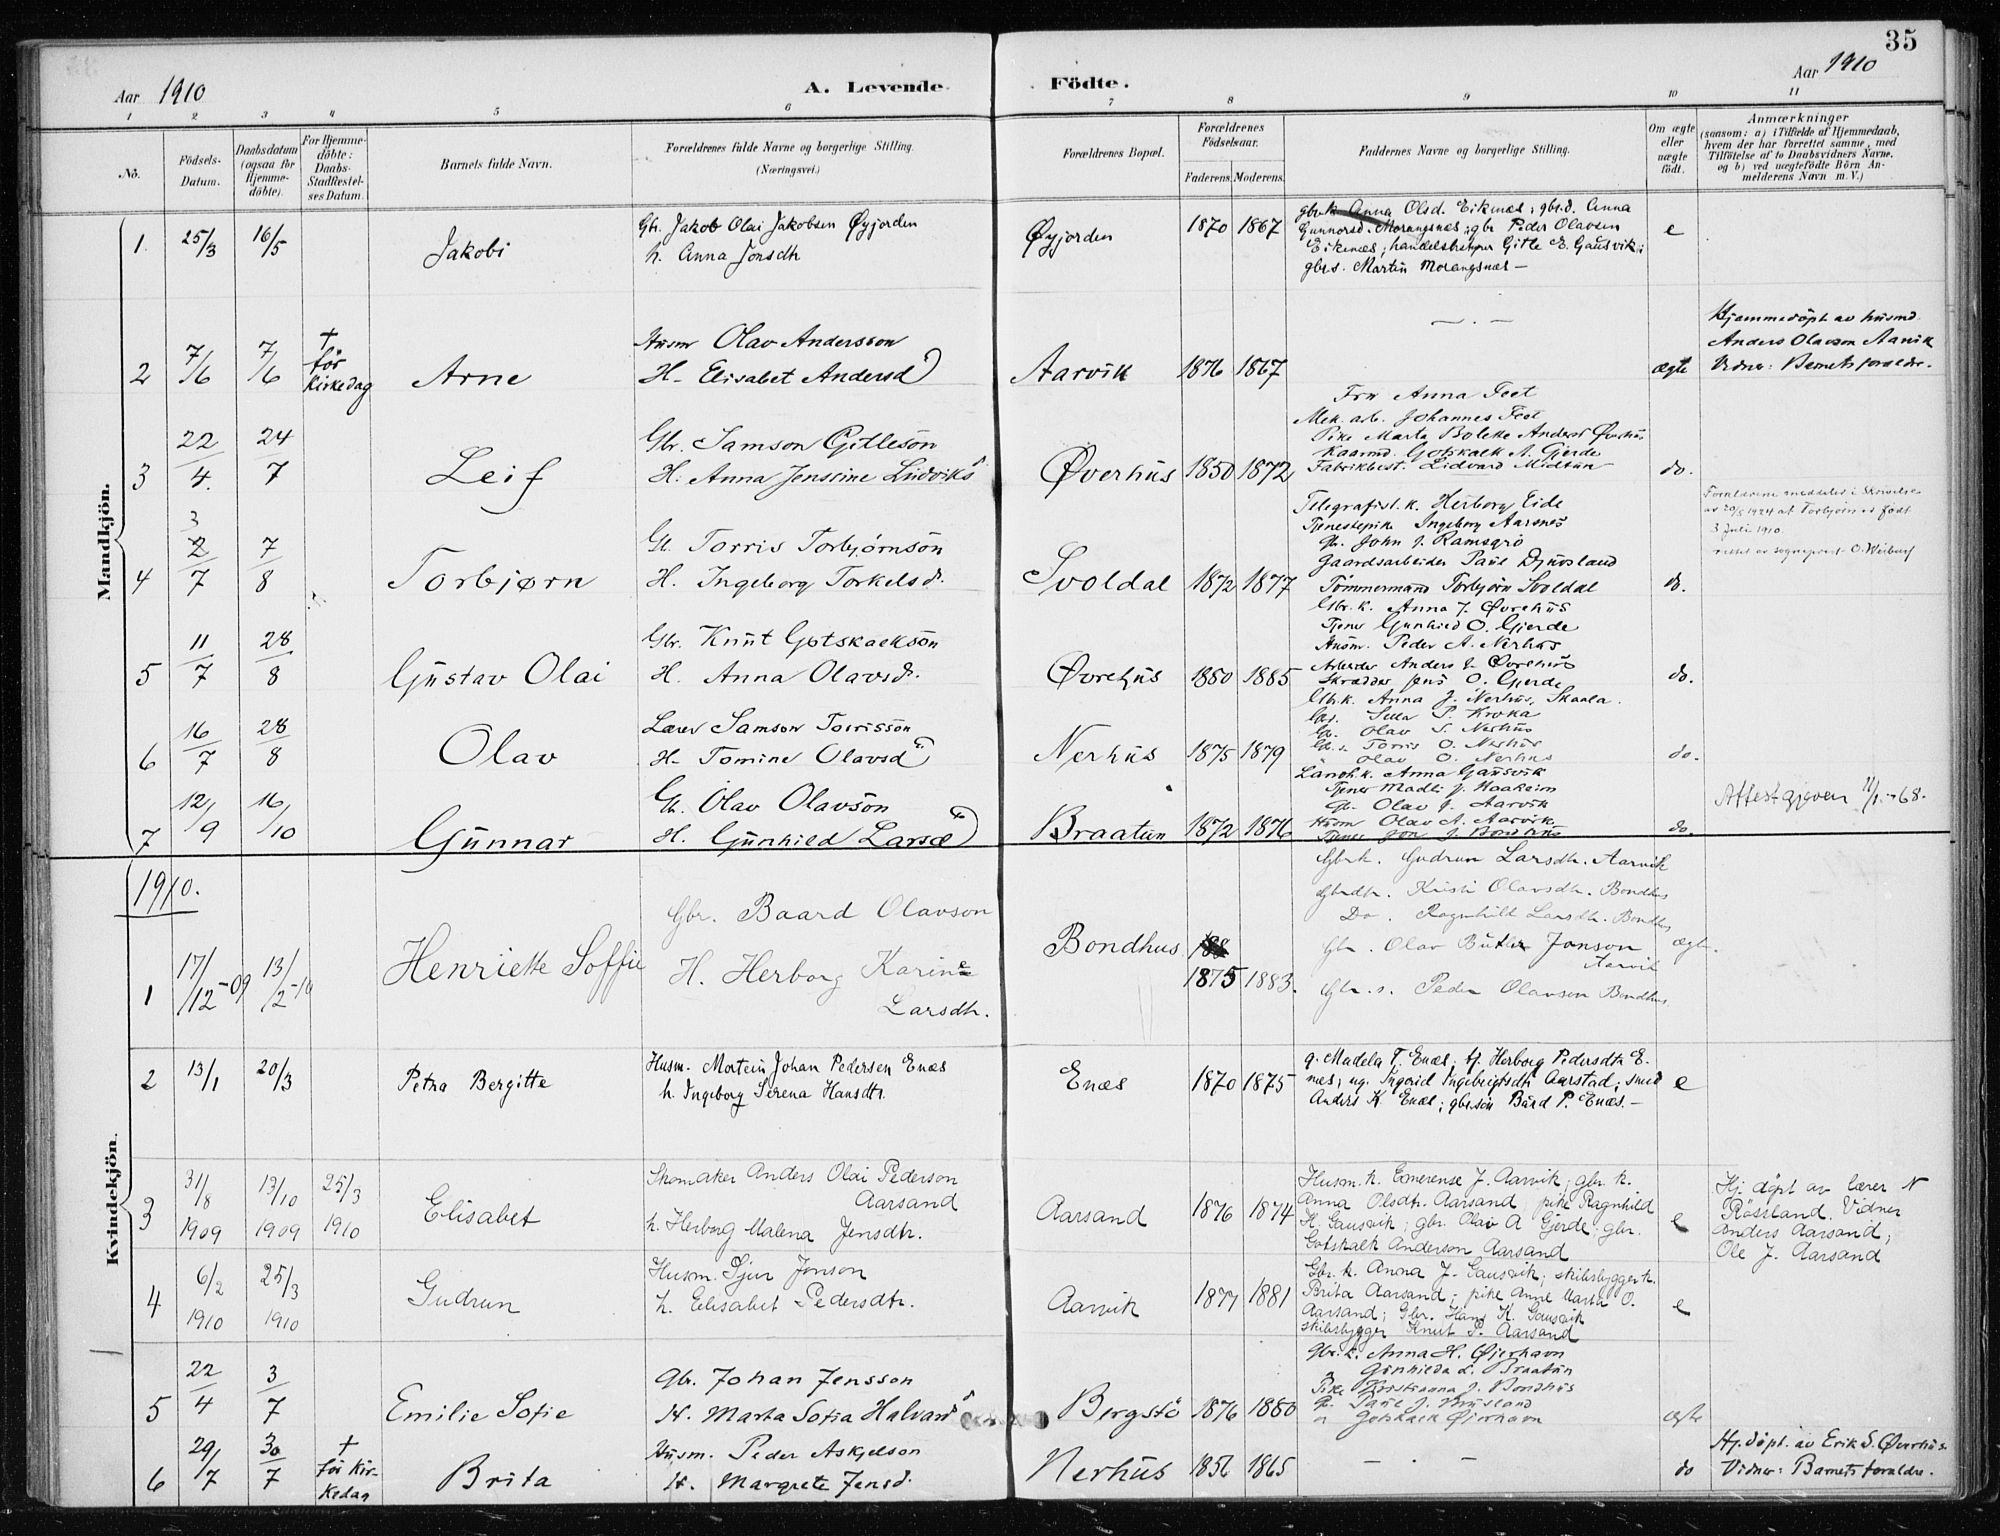 35
Aar 1910
A. Levende Födte.
Aar 1910
1 2 3 4 5 6 7 8 9 10 11
No.
Födsels-Datum.
Daabsdatum (ogsaa for Hjemmedöbte).
For Hjemmedöbte: Daabs-Stadfæstelses Datum.
Barnets fulde Navn.
Forældrenes fulde Navne og borgerlige Stilling. (Næringsvei.)
Forældrenes Bopæl.
Forældrenes Födselsaar.
Faderens. Moderens.
Faddernes Navne og borgerlige Stilling.
Om ægte eller uægte födt.
Anmærkninger
(saasom: a) i Tilfælde af Hjemmedaab, hvem der har forrettet samme, med Tilföielse af to Daabsvidners Navne, og b) ved uægtefödte Börn Anmelderens Navn m. V.)
Mandkjön.
1. 25/3 16/5 Jakobi
Gbr. Jakob Olai Jakobsen Øyjorden
h. Anna Jonsdtr
Øyjorden 1870 1867
gbr.k. Anna Olsd. Eiknæs; gbr.d. Anna
Gunnorsd. Morangsnæs; gbr Peder Olavsen
Eikenæs; handelsbetyer Gitle E. Gausvik;
gbr.s. Martin Morangsnæs —
e
2 7/6 7/6 † før Kirkedag Arne
Husm Olav Andersson
H. Elisabet Andersd
Aarvik 1876 1867
— . —
ægte
Hjemmedöpt av husmd
Anders Olavson Aarvik
Vidner: Barnets foraldre.
3 22/4. 24/7 Leif
Gbr. Samson Gitleson
H. Anna Jenssine Ludviks
Øverhus 1850 1872
Fru Anna Feet
Mek. arb. Johannes Feet
Pike Marta Bolette Andersd Øverhus
Kaarmd. Gotskalk A. Gjerde
Fabrikbest. Lidvard Midtun
do.
4 3 2/7 7/8 Torbjørn
Gb. Torris Torbjørnson
H. Ingeborg Torkelsd.
Svoldal 1872 1877
Telegrafist.k. Herborg Eide
Tjenestepik Ingeborg Aarsnes
Gb. John J. Ramsgrø
Gaardsarbeider Paul Djuvsland
Tømmermand Torbjørn Svoldal
do.
Forældrene meddeler i Skrivelse
av 20/5 1924 at Torbjørn er født
3 Juli 1910
rettet av sogneprest O. Weibust
5 11/7 28/8 Gustav Olai
Gbr. Knut Gotskalkson
H. Anna Olavsd.
Øvrehus 1880 1885
Gbr.k. Anna J. Øvrehus
Tjener Gunhild O. Gjerde
Husm. Peder A. Nerhus
Arbeider Anders J. Øvrehus
Skrædder Jens O. Gjerde
do.
6 16/7 28/8 Olav
Lærer Samson Torrisson
H. Tomine Olavsd
Nerhus 1875 1879
Gbr.k. Anna J. Nerhus, Skaala.
P. Kroka
Gb. Olav S. Nerhus
Gb.s. Torris O. Nerhus
" Olav O. Nerhus
do.
7 12/9 16/10 Gunnar
Gb. Olav Olavson
H. Gunhild Larsd
Braatun 1872 1876
Anna Gausvik
Tjener Madli J. Haaheim
Gb. Olav J. Aarvik
Husm Olav A. Aarvik
Tjener Jon J. Bondhus
do.
Attest gjeven 11/1-68.
Kvindekjön.
1910.
1 17/12-09 13/2-10 Henriette Soffie
Gbr. Baard Olavson
H. Herborg Karine
Larsdtr.
Bondhus 188
1875 1883.
Gbrk. Gudrun Larsdtr. Aarvik
Gbrdtr. Kristi Olavsdtr. Bondhus
Do. Ragnhilt Larsdtr. Bondhus
Gbr. Olav Butler Jonson
Aarvik
Gbr.s. Peder Olavson Bondhus
ægt.
2 13/1 20/3 Petra Bergitte
Husm. Mortein Johan Pedersen Enæs
h. Ingeborg Serena Hansdtr.
Enæs 1870 1875
g. Madela T. Enæs; tj. Herborg Pedersdtr E-
næs; ug. Ingerid Ingebrigtsdtr Aarstad; smed
Anders K. Enæs; gbr.søn Bård P. Enæs. —
e
3 31/8 1909 13/10 1909 25/3 1910 Elisabet
Skomaker Anders Olai Pederson
Aarsand
h. Herborg Malena Jensdtr.
Aarsand 1876 1874
Husm. k. Emerense J. Aarvik; gbr. k.
Anna Olsdtr. Aarsand, pike Ragnhild
K. Gausvik; gbr. Olav A Gjerde, gbr.
Gotskalk Anderson Aarsand
e
Hj. döpt av lærer N
Røssland. Vidner
Anders Aarsand;
Ole J. Aarsand
4 6/2 1910 25/3 1910 Gudrun
Husm. Sjur Jonson
h. Elisabet Pedersdtr.
Aarvik 1877 1881
Gbr. k. Anna J. Gausvik; skibsbygger k.
Brita Aarsand; pike Anne Marta O.
Aarsand; Gbr. Hans K. Gausvik
skibsbygger Knut P. Aarsand
e
5 22/4 3/7 Emilie Sofie
Gbr. Johan Jensson
H. Marta Sofia Halvard
Bergstø 1876 1880
Gbr.k. Anna H. Øierhavn
" Gunhilda L. Braatun
Pike Kristianna J. Bondhus
Gotskalk Øierhavn
ægte
6 29/7 30/7 † før Kirkedag Brita
Husm. Peder Askjelson
H. Margrete Jensd.
Nerhus 1856 1865
— . —
do
Hj. döpt. av Erik S. Øverhus.
Vidner: Barnets foraldre.